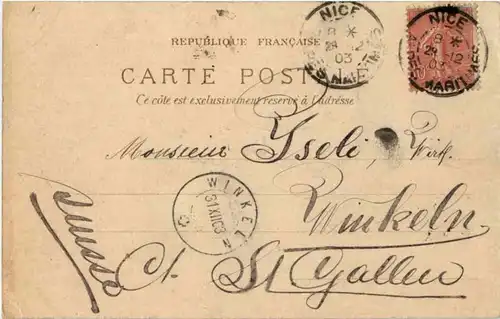 NICE
8 *
24 12
03
ALPES MARITIMES
NICE
8 *
24 12
03
ALPES MARITIMES
REPUBLIQUE FRANÇAISE
CARTE POST
Ce côté est exclusivement réservé à l'adresse
Monsieur Iseli, Wirt.
WINKEL
31 XII 03
Winkeln
Suisse
Ct. St Gallen